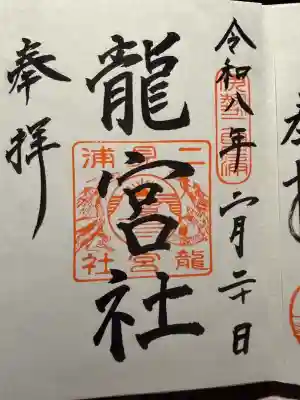 令和八年二月二十日
龍宮社
奉拝
二見浦
龍宮社
伊勢